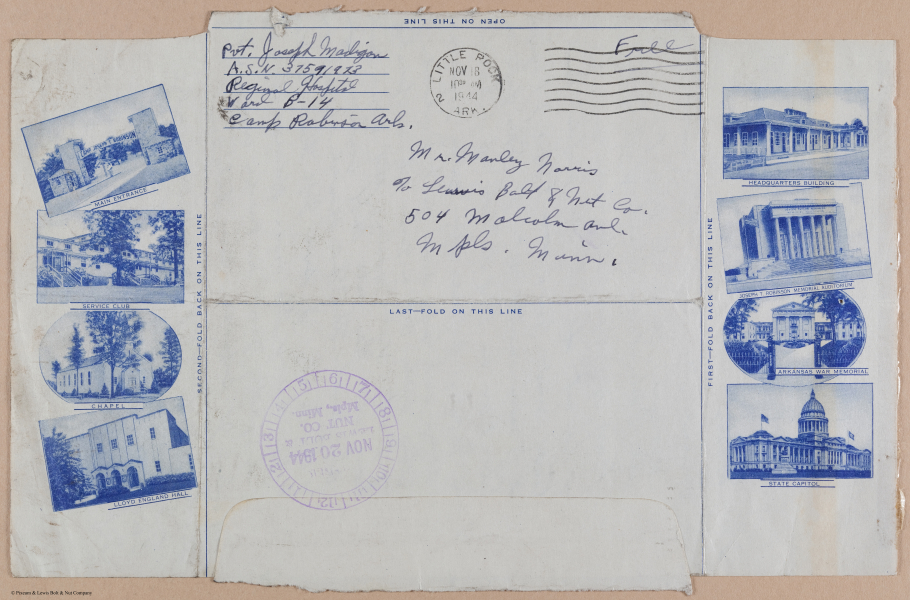 OPEN ON THIS LINE
Pvt. Joseph Madigan
A.S.N. 37591973
Regional Hospital
Ward B-14
Camp Robinson Ark.
LITTLE ROCK
NOV 18
1944
ARK.
2
Free
Mr. Manley Norris
To Lewis Bolt & Nut Co.
504 Malcolm Ave.
Mpls. Minn.
MAIN ENTRANCE
SERVICE CLUB
CHAPEL
LLOYD ENGLAND HALL
SECOND—FOLD BACK ON THIS LINE
LAST—FOLD ON THIS LINE
FIRST—FOLD BACK ON THIS LINE
HEADQUARTERS BUILDING
JOSEPH T. ROBINSON MEMORIAL AUDITORIUM
ARKANSAS WAR MEMORIAL
STATE CAPITOL
NOV 20 1944
LEWIS BOLT &
NUT CO.
Mpls., Minn.
© Pyorum & Lewis Bolt & Nut Company